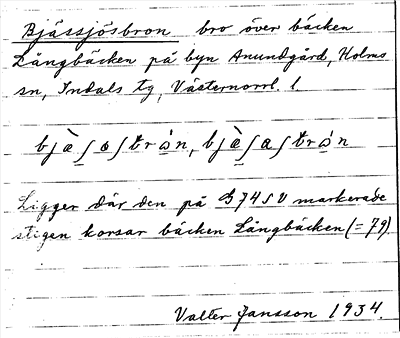 Bjässjösbron bro över bäcken
Långbäcken på byn Anundgård, Holms
sn, Indals tg, Västernorrl. l.
bjæ̀ʃaʃtrȯ̀n, bjæ̀ʃaʃtrȯ̀n
Ligger där den på G74SV markerade
stigen korsar bäcken Långbäcken (= 79)
Valter Jansson 1934.